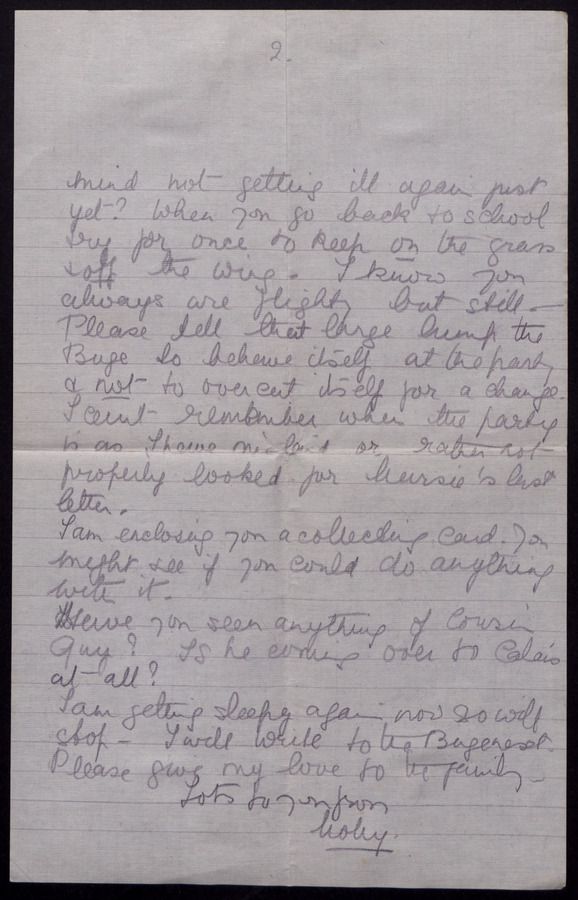 2.
mind not getting ill again just
yet? When you go back to school
try for once to keep on the grass
& off the wing. I know you
always are flighty but still —
Please tell that large lump the
Buge to behave itself at the party
& not to over eat itself for a change.
I can't remember when the party
is as I have mislaid or rather not
properly looked for Nursie's last
letter.
I am enclosing you a collecting card. You
might see if you could do anything
with it.
Have you seen anything of Cousin
Guy? Is he coming over to Calais
at all?
I am getting sleepy again now so will
stop — I will write to the Buge next.
Please give my love to the family —
Lots to you from